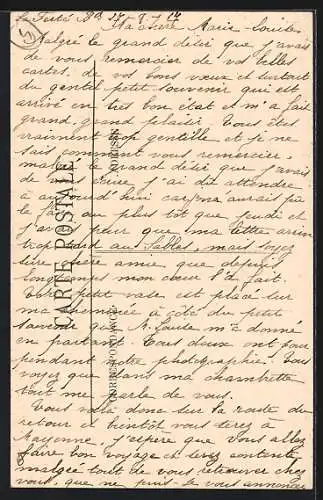 La Ferté Bd
Ma chère Marie-Louise
Malgré le grand désir que j'avais
de vous remercier de vos belles
cartes. de vos bons vœux et surtout
du gentil petit souvenir qui est
arrivé en très bon état et m'a fait
grand, grand plaisir. Vous êtes
vraiment trop gentille et je ne
sais comment vous remercier.
malgré le grand désir que j'avais
de vous écrire j'ai dû attendre
à aujourd'hui car je n'aurais pu
le faire au plus tôt que jeudi et
j'avais peur que ma lettre arrive
trop tard aux Sables, mais soyez
sûre chère amie que depuis
longtemps mon cœur l'a fait.
Votre petit vase est placé sur
ma cheminée à côté du petit
souvenir que M. Louise m'a donné
en partant. Tous deux ont pour
pendant votre photographie. Vous
voyez que dans ma chambrette
tout me parle de vous.
Vous voilà donc sur la route du
retour et bientôt vous serez à
Mayenne. j'espère que vous allez
faire bon voyage et serez contente
malgré tout de vous retrouver chez
vous, que ne puis-je vous annoncer
CARTE POSTALE
CORRESPONDANCE
ADRESSE